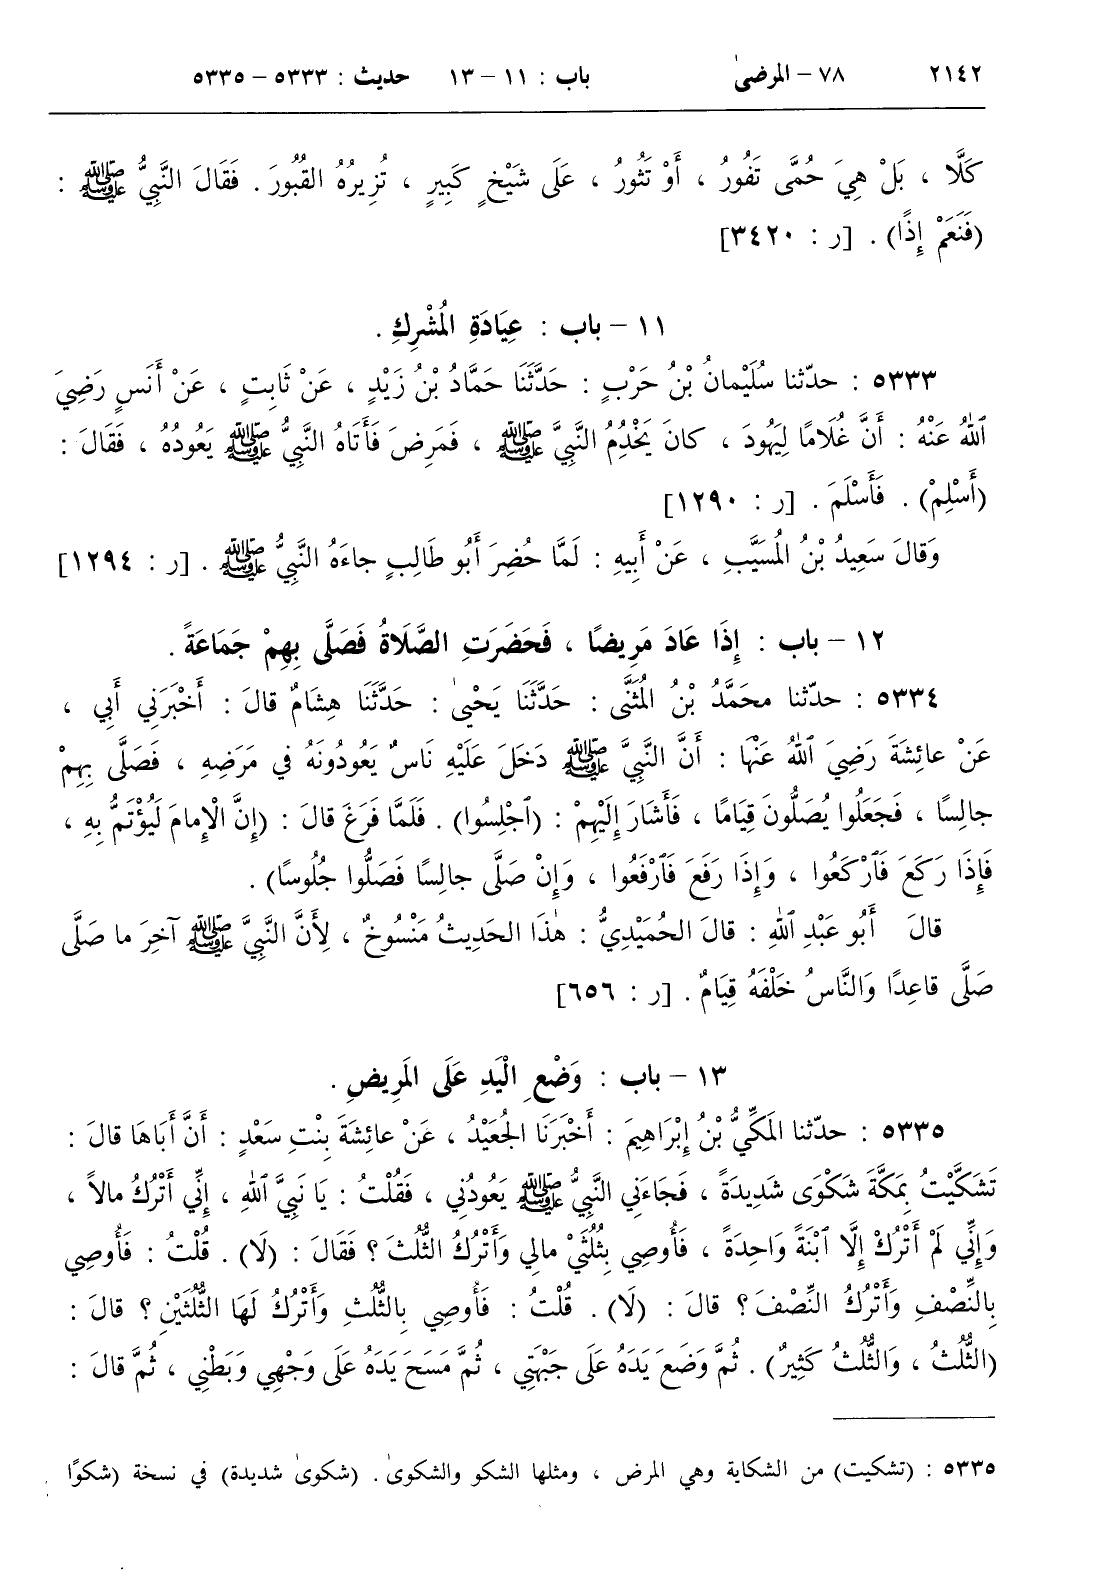 ٢١٤٢ ٧٨ – المرضىٰ باب : ١١ – ١٣ حديث : ٥٣٣٣ – ٥٣٣٥
كَلَّا ، بَلْ هِيَ حُمَّى تَفُورُ ، أَوْ تَثُورُ ، عَلَى شَيْخٍ كَبِيرٍ ، تُزِيرُهُ القُبُورَ . فَقَالَ النَّبِيُّ ﷺ :
(فَنَعَمْ إِذًا) . [ر : ٣٤٢٠]
١١ – باب : عِيَادَةِ المُشْرِكِ .
٥٣٣٣ : حدّثنا سُلَيْمانُ بْنُ حَرْبٍ : حَدَّثَنَا حَمَّادُ بْنُ زَيْدٍ ، عَنْ ثَابِتٍ ، عَنْ أَنَسٍ رَضِيَ
ٱللهُ عَنْهُ : أَنَّ غُلَامًا لِيَهُودَ ، كانَ يَخْدُمُ النَّبِيَّ ﷺ ، فَمَرِضَ فَأَتَاهُ النَّبِيُّ ﷺ يَعُودُهُ ، فَقَالَ :
(أَسْلِمْ) . فَأَسْلَمَ . [ر : ١٢٩٠]
وَقالَ سَعِيدُ بْنُ المُسَيَّبِ ، عَنْ أَبِيهِ : لَمَّا حُضِرَ أَبُو طَالِبٍ جاءَهُ النَّبِيُّ ﷺ . [ر : ١٢٩٤]
١٢ – باب : إِذَا عَادَ مَرِيضًا ، فَحَضَرَتِ الصَّلَاةُ فَصَلَّى بِهِمْ جَمَاعَةً .
٥٣٣٤ : حدّثنا محمَّدُ بْنُ المُثَنَّى : حَدَّثَنَا يَحْيىٰ : حَدَّثَنَا هِشَامٌ قالَ : أَخْبَرَنِي أَبِي ،
عَنْ عائِشَةَ رَضِيَ ٱللهُ عَنْهَا : أَنَّ النَّبِيَّ ﷺ دَخَلَ عَلَيْهِ نَاسٌ يَعُودُونَهُ في مَرَضِهِ ، فَصَلَّى بِهِمْ
جالِسًا ، فَجَعَلُوا يُصَلُّونَ قِيَامًا ، فَأَشَارَ إِلَيْهِمْ : (ٱجْلِسُوا) . فَلَمَّا فَرَغَ قالَ : (إِنَّ الْإِمامَ لَيُؤْتَمُّ بِهِ ،
فَإِذَا رَكَعَ فَٱرْكَعُوا ، وَإِذَا رَفَعَ فَٱرْفَعُوا ، وَإِنْ صَلَّى جالِسًا فَصَلُّوا جُلُوسًا) .
قالَ أَبُو عَبْدِ ٱللهِ : قالَ الحُمَيْدِيُّ : هٰذَا الحَدِيثُ مَنْسُوخٌ ، لِأَنَّ النَّبِيَّ ﷺ آخِرَ ما صَلَّى
صَلَّى قاعِدًا وَالنَّاسُ خَلْفَهُ قِيَامٌ . [ر : ٦٥٦]
١٣ – باب : وَضْعِ الْيَدِ عَلَى المَرِيضِ .
٥٣٣٥ : حدّثنا المَكِّيُّ بْنُ إِبْرَاهِيمَ : أَخْبَرَنَا الجُعَيْدُ ، عَنْ عائِشَةَ بِنْتِ سَعْدٍ : أَنَّ أَبَاهَا قالَ :
تَشَكَّيْتُ بِمَكَّةَ شَكْوَى شَدِيدَةً ، فَجَاءَنِي النَّبِيُّ ﷺ يَعُودُنِي ، فَقُلْتُ : يَا نَبِيَّ ٱللهِ ، إِنِّي أَتْرُكُ مالاً ،
وَإِنِّي لَمْ أَتْرُكْ إِلَّا ٱبْنَةً وَاحِدَةً ، فَأُوصِي بِثُلُثَيْ مالِي وَأَتْرُكُ الثُّلُثَ ؟ فَقَالَ : (لَا) . قُلْتُ : فَأُوصِي
بِالنِّصْفِ وَأَتْرُكُ النِّصْفَ ؟ قالَ : (لَا) . قُلْتُ : فَأُوصِي بِالثُّلُثِ وَأَتْرُكُ لَهَا الثُّلُثَيْنِ ؟ قالَ :
(الثُّلُثُ ، وَالثُّلُثُ كَثِيرٌ) . ثُمَّ وَضَعَ يَدَهُ عَلَى جَبْهَتِي ، ثُمَّ مَسَحَ يَدَهُ عَلَى وَجْهِي وَبَطْنِي ، ثُمَّ قالَ :
٥٣٣٥ : (تشكيت) من الشكاية وهي المرض ، ومثلها الشكو والشكوىٰ . (شكوىٰ شديدة) في نسخة (شكوًا